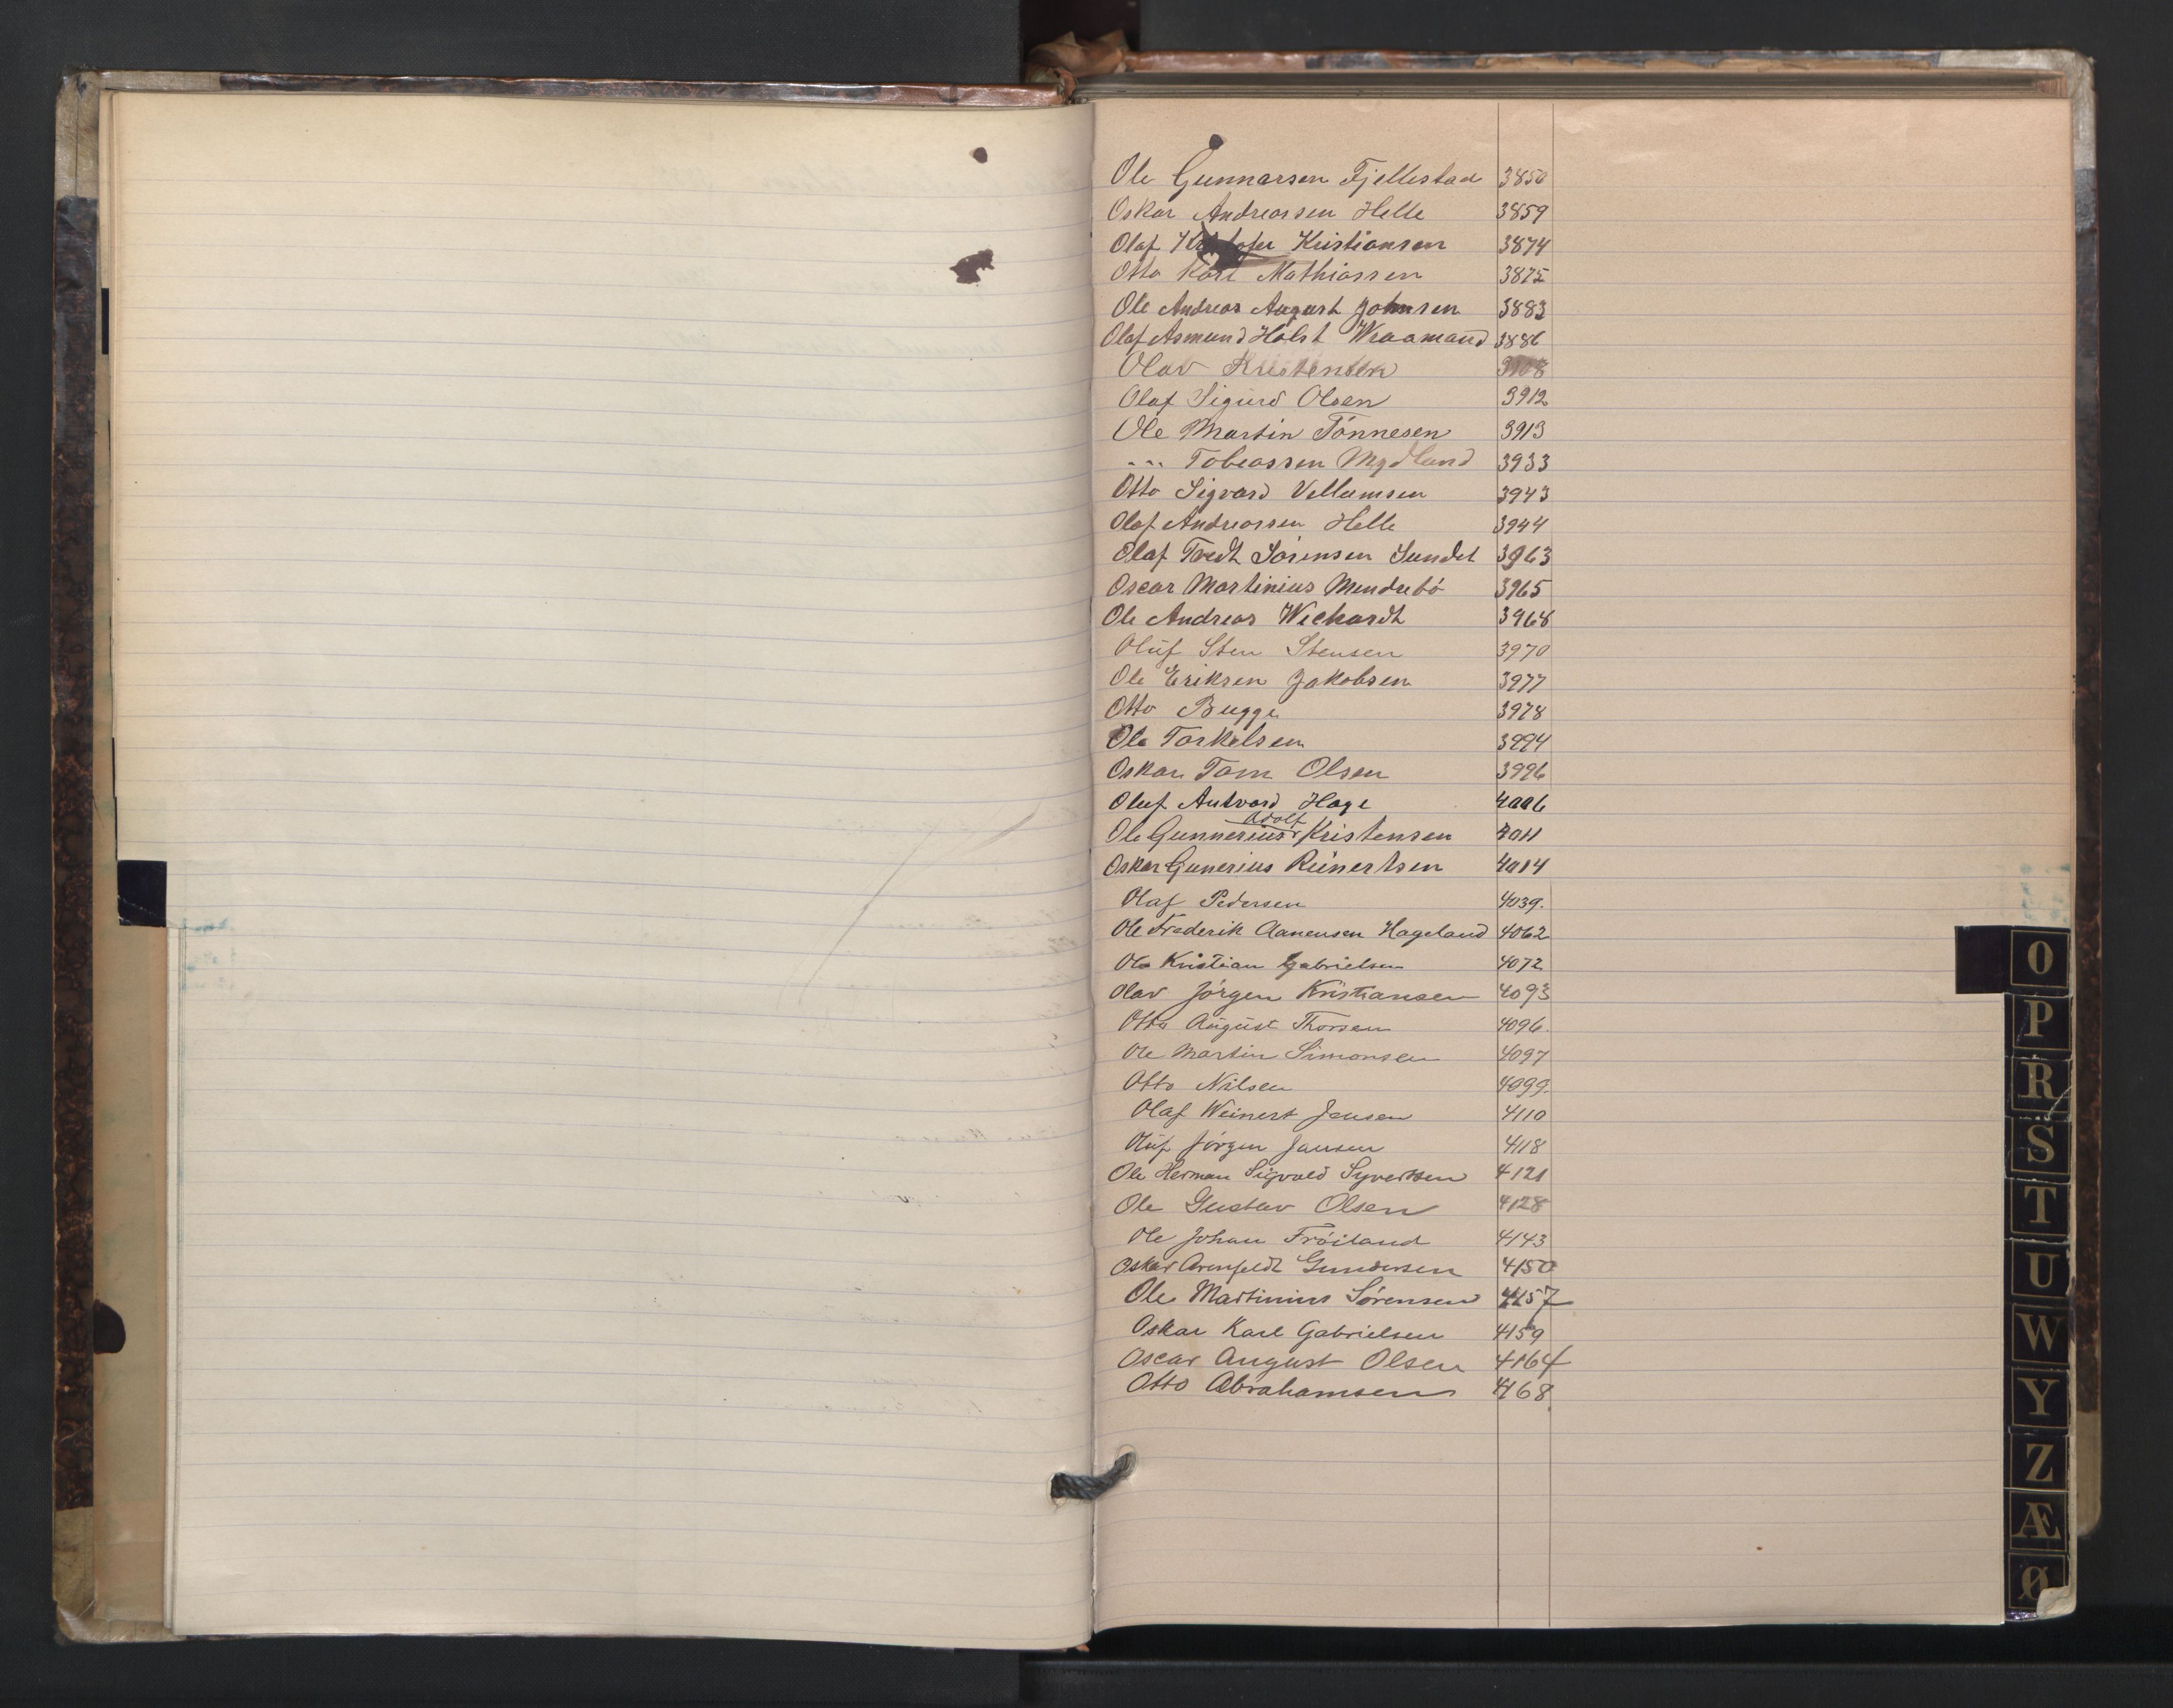 Ole Gunnarsen Fjellestad 3850
Oskar Andreassen Helle 3859
Olaf Kristiansen 3874
Otto Karl Mathiassen 3875
Ole Andreas August Johnsen 3883
Olaf Asmund Holst Wraamand 3886
Olav Kristensen 3908
Olaf Sigurd Olsen 3912
Ole Martin Tönnesen 3913
--- Tobiassen Mydland 3933
Otto Sigvard Vellumsen 3943
Olaf Andreassen Helle 3944
Olaf Tredt Sörensen Sundet 3963
Oscar Martinius Mendrebö 3965
Ole Andreas Wichardt 3968
Oluf Sten Stensen 3970
Ole Eriksen Jakobsen 3977
Otto Bugge 3978
Ole Torkelsen 3994
Oskar Tom Olsen 3996
Oluf Antvard Hage 4006
Adolf
Ole Gunnerius Kristensen 4011
Oskar Gunerius Reinertsen 4014
Olaf Pedersen 4039.
Ole Frederik Aanensen Hageland 4062
Ole Kristian Gabrielsen 4072
Olav Jörgen Kristiansen 4093
Otto August Thorsen 4096.
Ole Martin Simonsen 4097
Otto Nilsen 4099.
Olaf Weinert Jensen 4110
Oluf Jörgen Jansen 4118
Ole Herman Sigvald Syvertsen 4121
Ole Gustav Olsen 4128
Ole Johan Fröiland 4143
Oskar Arenfeldt Gundersen 4150
Ole Martinius Sörensen 4157
Oskar Karl Gabrielsen 4159
Oscar August Olsen 4164
Otto Abrahamsen 4168.
O
P
R
S
T
U
W
Y
Z
Æ
Ø